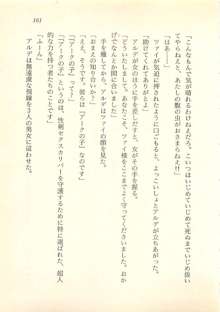 103
「こんなもんで気が晴れるわけねえだろ。こいつはいじめていじめて死ぬまでいじめ
てやらねえと、あたしの腹の虫がおさまらねえんだ」
「はあ……」
ファイが気迫に押されたように口ごもると、よいしょとアルデが立ちあがった。
「助けてくれてありがとよ」
アルデが手を差しだすと、女がその手を握る。
「どういたしまして。あなたこそ、ファイ様をここまで守ってくださいました。おか
げで間に合いました」
手を離すと、アルデはファイの顔を見る。
「おまえの知り合いか？」
「ええ、そうです。彼らは『アークの子』なのです」
「アークの子？」
「『アークの子』というのは、性剣セクスカリバーを守護するために特に選ばれた、超人
的な力を持つ者たちのことです」
「ふーん」
アルデは無遠慮な視線を３人の男女に這わせた。